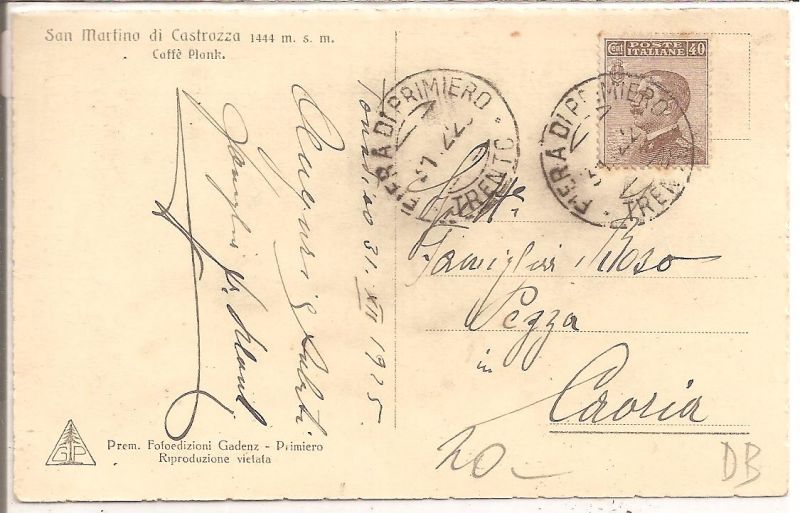 San Martino di Castrozza 1444 m. s. m.
Caffè Plank.
POSTE ITALIANE
Cent 40
FIERA DI PRIMIERO
TRENTO
FIERA DI PRIMIERO
TRENTO
31. XII 1925.
Auguri e Saluti
Famiglia
Famiglia
Pezza
in
Caoria
GP
Prem. Fotoedizioni Gadenz - Primiero
Riproduzione vietata
20-
DB